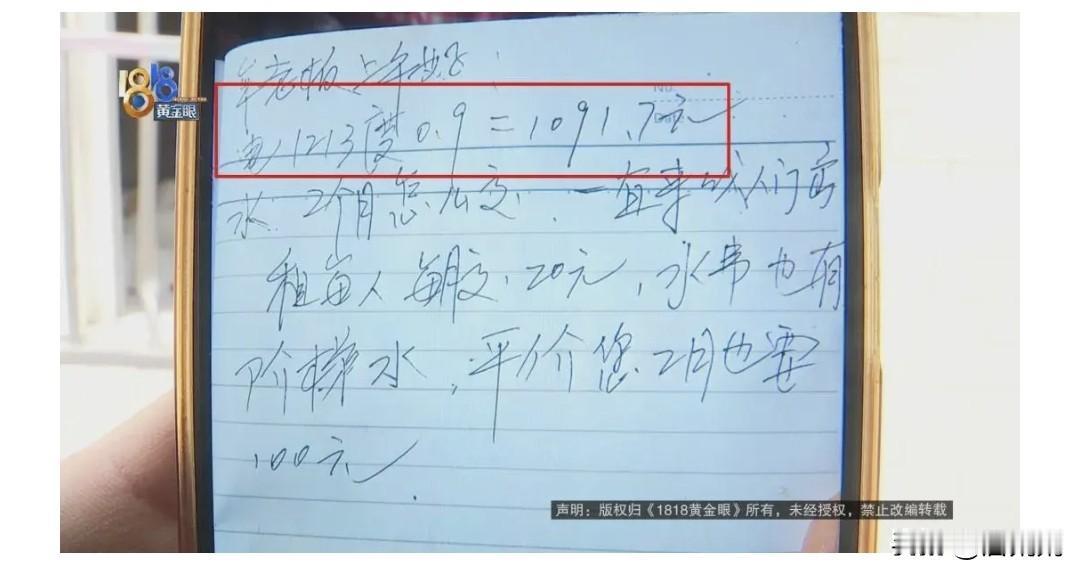 老板上午好：
1818
黄金眼
电1213度0.9=1091.7元
水 2个月怎么交. 一直来我们房
租每人每月交20元，水书也有
阶梯水，平价您2月也要
100元.
声明：版权归《1818黄金眼》所有，未经授权，禁止改编转载